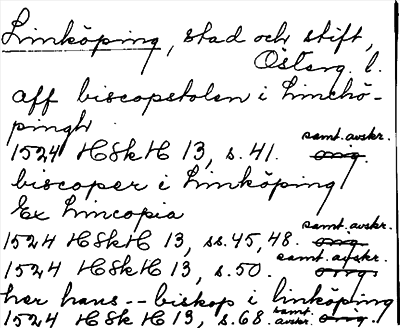 Linköping, stad och stift,
Österg. l.
aff biscopstolen i Linchö-
pingh
samt. avskr.
1524 HSkH 13, s. 41. orig.
biscoper i Linköping
Ex Lincopia
samt. avskr.
1524 HSkH 13, ss. 45, 48. orig.
samt. avskr.
1524 HSkH 13, s. 50. orig.
her hans -- biskop i linköping
1524 HSkH 13, s. 68. samt. avskr. orig.